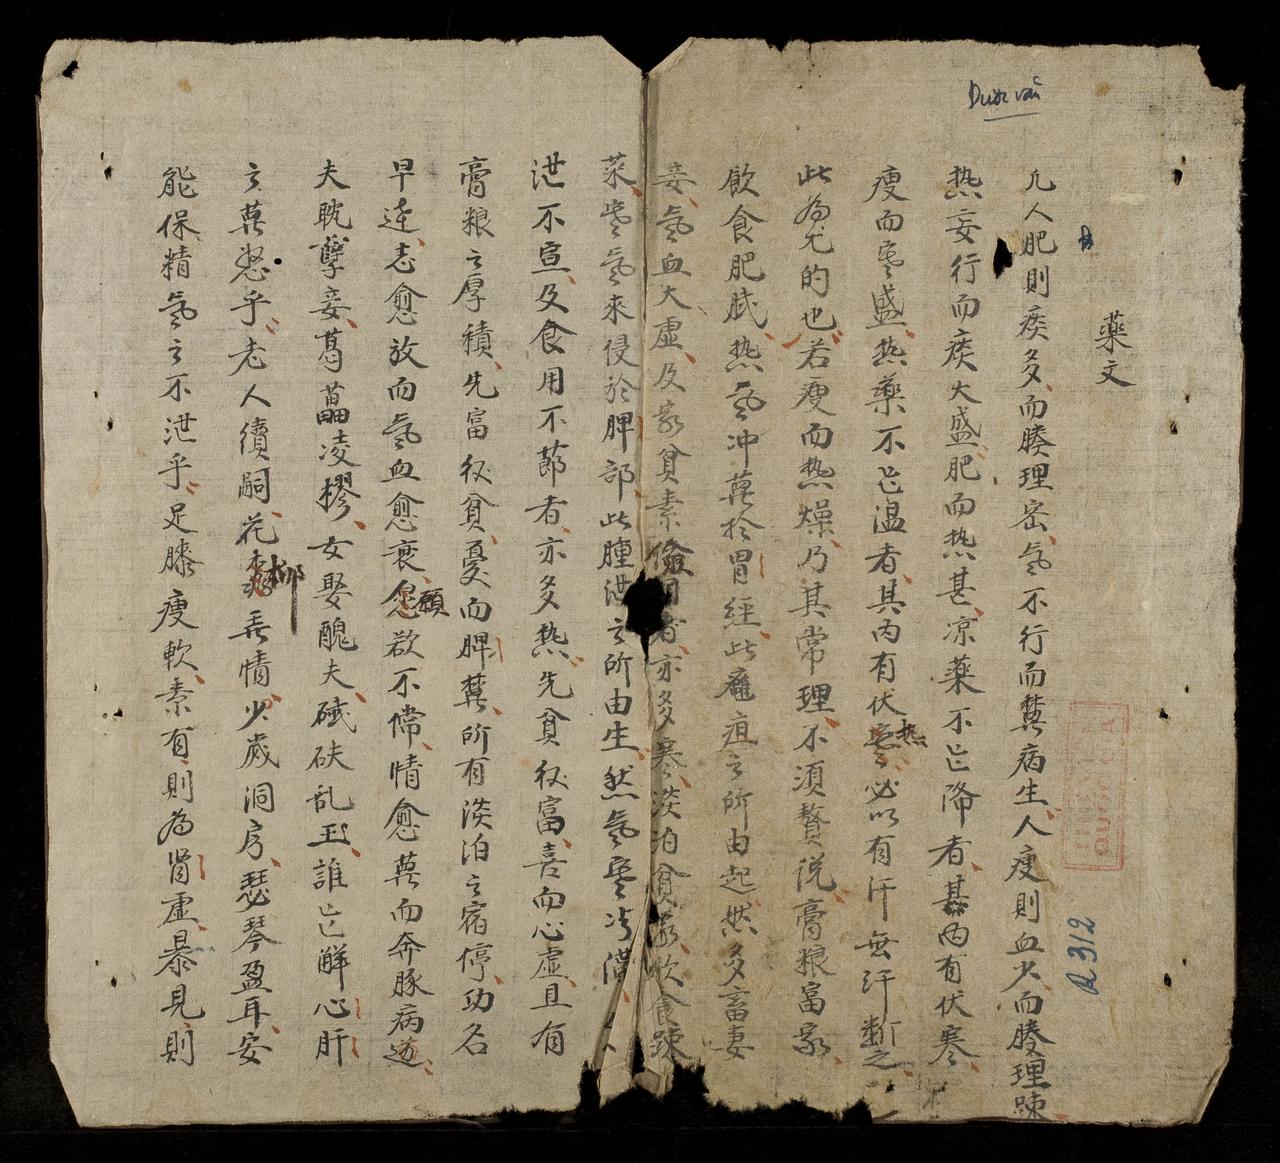 藥文
凢人肥則痰多、而腠理密、氣不行而蓄病生、人瘦則血少、而腠理踈
熱妄行而痰大盛、肥而熱甚、凉藥不能降者、其内有伏寒、
瘦而寒盛、熱藥不能温者、其内有伏熱、必以有汗無汗断之、
此為尤的也、若瘦而熱燥、乃其常理、不須贅说、膏粮富家、
飲食肥膩、熱氣冲蒸於胃經、此癰疽之所由起、然多畜妻
妾、氣血大虚、及家貧素儉用者、亦多寒、淡泊貧家、飲食踈
菜、寒氣來侵於脾部、此腫泄之所由生、然氣
泄不宣、及食用不莭者、亦多熱、先貧後富、喜而心虚、且有
膏粮之厚積、先富後貧、憂而脾蒸、所有淡泊之宿停、功名
早達、志愈放而氣血愈衰、願欲不償、情愈蒸而奔豚病遊、
夫耽孽妾、葛藟凌樛、女娶醜夫、碔砆乱玉、誰能解心肝
之蒸怒乎、老人續嗣、花柳無情、少歲洞房、瑟琴盈耳、安
能保精氣之不泄乎、足膝瘦軟、素有則為腎虚、暴見則
Dược văn
A 312